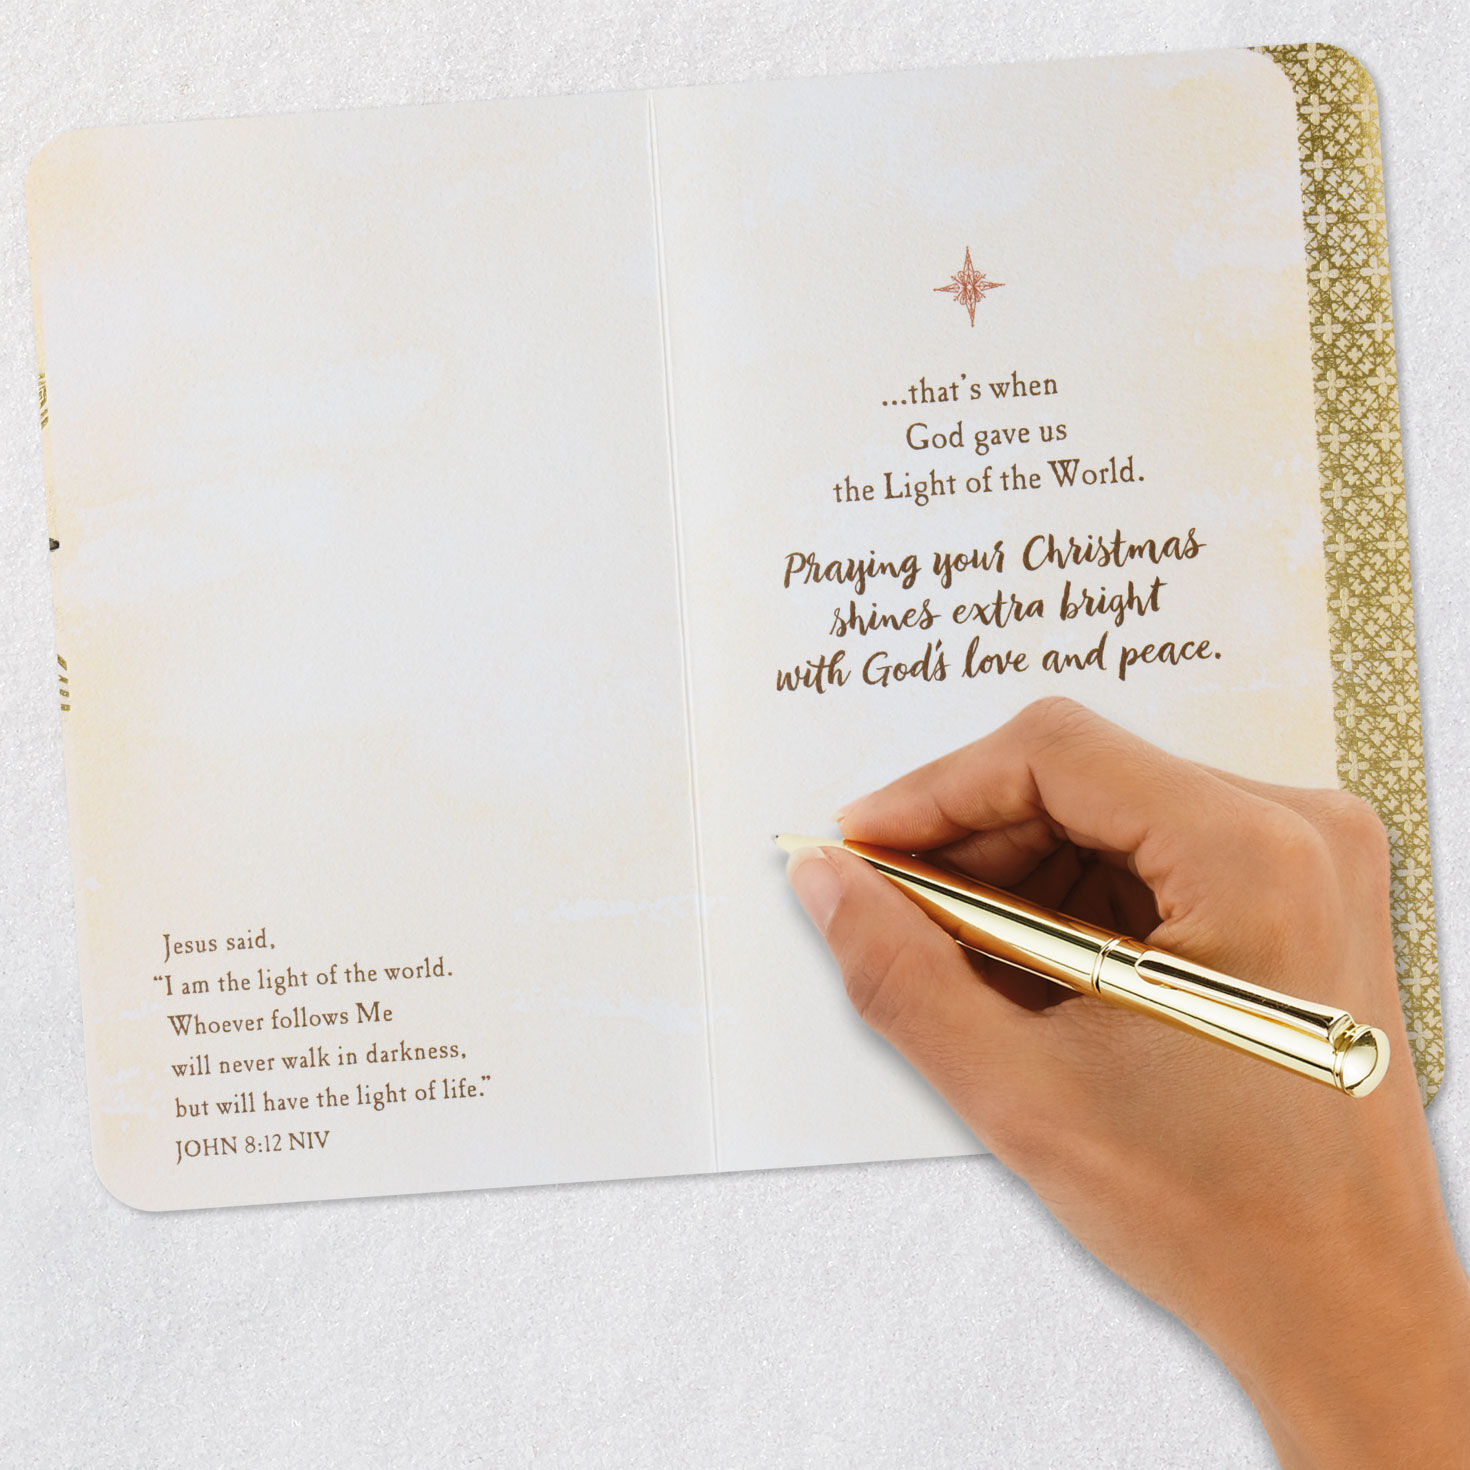 Jesus said,
“I am the light of the world.
Whoever follows Me
will never walk in darkness,
but will have the light of life.”
JOHN 8:12 NIV
...that’s when
God gave us
the Light of the World.
Praying your Christmas
shines extra bright
with God’s love and peace.